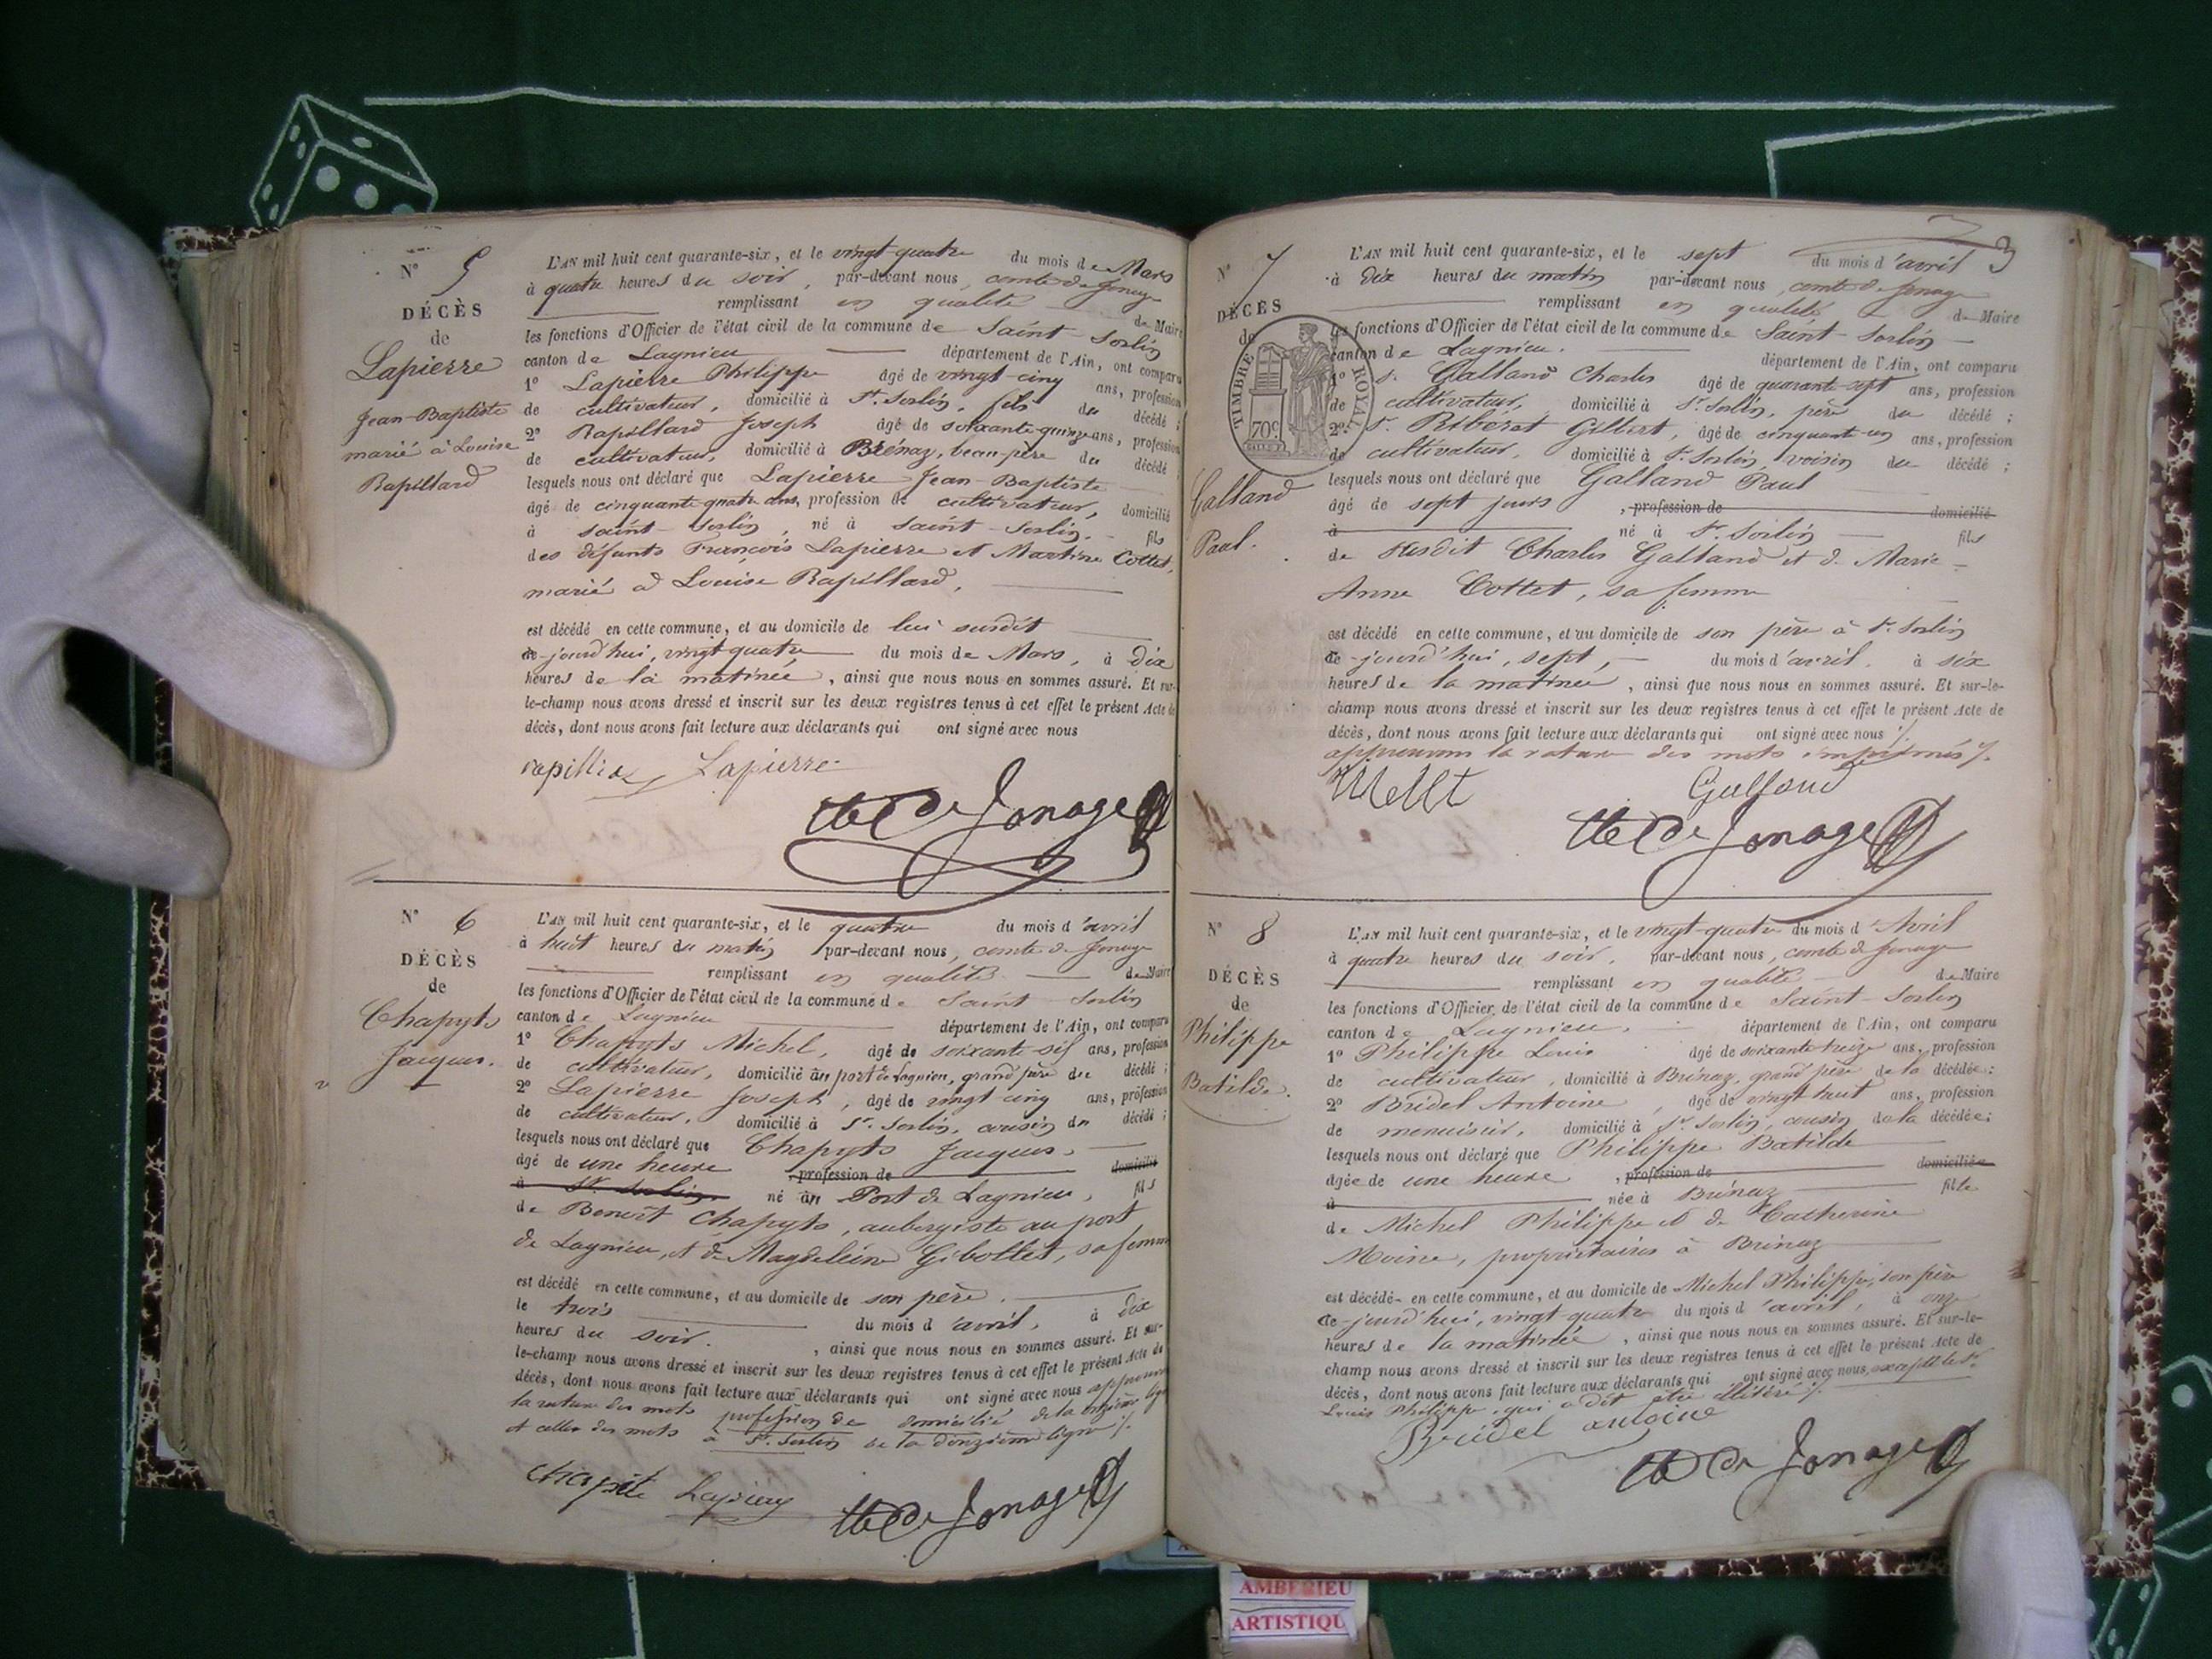 N° 5
DÉCÈS
de
Lapierre
Jean-Baptiste
marié à Louise
Rapillard
L'AN mil huit cent quarante-six, et le vingt-quatre du mois de Mars
à quatre heures du soir, par-devant nous, comte de Jonage
remplissant en qualité de Maire
les fonctions d'Officier de l'état civil de la commune de Saint-Sorlin
canton de Lagnieu département de l'Ain, ont comparu
1° Lapierre Philippe âgé de vingt-cinq ans, profession
de cultivateur, domicilié à St. Sorlin, fils du décédé ;
2° Rapillard Joseph âgé de soixante-quinze ans, profession
de cultivateur, domicilié à Brénaz, beau-père du décédé
lesquels nous ont déclaré que Lapierre Jean-Baptiste
âgé de cinquante quatre ans, profession de cultivateur, domicilié
à saint-Sorlin, né à saint-Sorlin, fils
des défunts François Lapierre et Martine Cottet,
marié à Louise Rapillard,
est décédé en cette commune, et au domicile de lui susdit
ce-jourd'hui, vingt-quatre du mois de Mars, à dix
heures de la matinée, ainsi que nous nous en sommes assuré. Et sur-
le-champ nous avons dressé et inscrit sur les deux registres tenus à cet effet le présent Acte de
décès, dont nous avons fait lecture aux déclarants qui ont signé avec nous
Lapierre
Cte De Jonage
N° 6
DÉCÈS
de
Chapyts
Jacques.
L'AN mil huit cent quarante-six, et le quatre du mois d'avril
à huit heures du matin par-devant nous, comte de Jonage
remplissant en qualité de Maire
les fonctions d'Officier de l'état civil de la commune de Saint-Sorlin
canton de Lagnieu département de l'Ain, ont comparu
1° Chapyts Michel, âgé de soixante-six ans, profession
de cultivateur, domicilié au port de Lagnieu, grand père du décédé ;
2° Lapierre Joseph, âgé de vingt-cinq ans, profession
de cultivateur, domicilié à St. Sorlin, cousin du décédé ;
lesquels nous ont déclaré que Chapyts Jacques,
âgé de une heure profession de domicilié
à St. Sorlin né au Port de Lagnieu, fils
de Benoît Chapyts, aubergiste au port
de Lagnieu, et de Magdeleine Gibottet, sa femme
est décédé en cette commune, et au domicile de son père.
le trois du mois d'avril, à dix
heures du soir, ainsi que nous nous en sommes assuré. Et sur-
le-champ nous avons dressé et inscrit sur les deux registres tenus à cet effet le présent Acte de
décès, dont nous avons fait lecture aux déclarants qui ont signé avec nous approuvant
la rature des mots profession de domicilié de la onzième ligne
et celle des mots à St. Sorlin de la douzième ligne ./.
Cte De Jonage
3
N° 7
DÉCÈS
de
TIMBRE ROYAL
70c
Galland
Paul.
L'AN mil huit cent quarante-six, et le sept du mois d'avril
à dix heures du matin par-devant nous, comte de Jonage
remplissant en qualité de Maire
les fonctions d'Officier de l'état civil de la commune de Saint-Sorlin
canton de Lagnieu. département de l'Ain, ont comparu
1° s. Galland Charles âgé de quarante-sept ans, profession
de cultivateur, domicilié à St. Sorlin, père du décédé ;
2° s. Ribérat Gilbert, âgé de cinquante-un ans, profession
de cultivateur, domicilié à St. Sorlin, voisin du décédé ;
lesquels nous ont déclaré que Galland Paul
âgé de sept jours, profession de domicilié
à né à St. Sorlin fils
de susdit Charles Galland et de Marie-
Anne Cottet, sa femme
est décédé en cette commune, et au domicile de son père à St. Sorlin
ce-jourd'hui, sept, du mois d'avril, à six
heures de la matinée, ainsi que nous nous en sommes assuré. Et sur-le-
champ nous avons dressé et inscrit sur les deux registres tenus à cet effet le présent Acte de
décès, dont nous avons fait lecture aux déclarants qui ont signé avec nous ./.
approuvant la rature des mots imprimés ./.
Galland
Cte De Jonage
N° 8
DÉCÈS
de
Philippe
Batilde.
L'AN mil huit cent quarante-six, et le vingt-quatre du mois d'Avril
à quatre heures du soir, par-devant nous, comte de Jonage
remplissant en qualité de Maire
les fonctions d'Officier de l'état civil de la commune de Saint-Sorlin
canton de Lagnieu. département de l'Ain, ont comparu
1° Philippe Louis âgé de soixante-treize ans, profession
de cultivateur, domicilié à Brénaz, grand père de la décédée ;
2° Bridel Antoine, âgé de vingt huit ans, profession
de menuisier, domicilié à St. Sorlin, cousin de la décédée ;
lesquels nous ont déclaré que Philippe Batilde
âgée de une heure, profession de domiciliée
à née à Brénaz fille
de Michel Philippe et de Catherine
Moine, propriétaires à Brénaz
est décédée en cette commune, et au domicile de Michel Philippe, son père
ce-jourd'hui, vingt-quatre du mois d'avril, à onze
heures de la matinée, ainsi que nous nous en sommes assuré. Et sur-le-
champ nous avons dressé et inscrit sur les deux registres tenus à cet effet le présent Acte de
décès, dont nous avons fait lecture aux déclarants qui ont signé avec nous, excepté le sr.
Louis Philippe, qui a dit être illitéré ./.
Bridel antoine
Cte De Jonage
AMBERIEU
ARTISTIQU